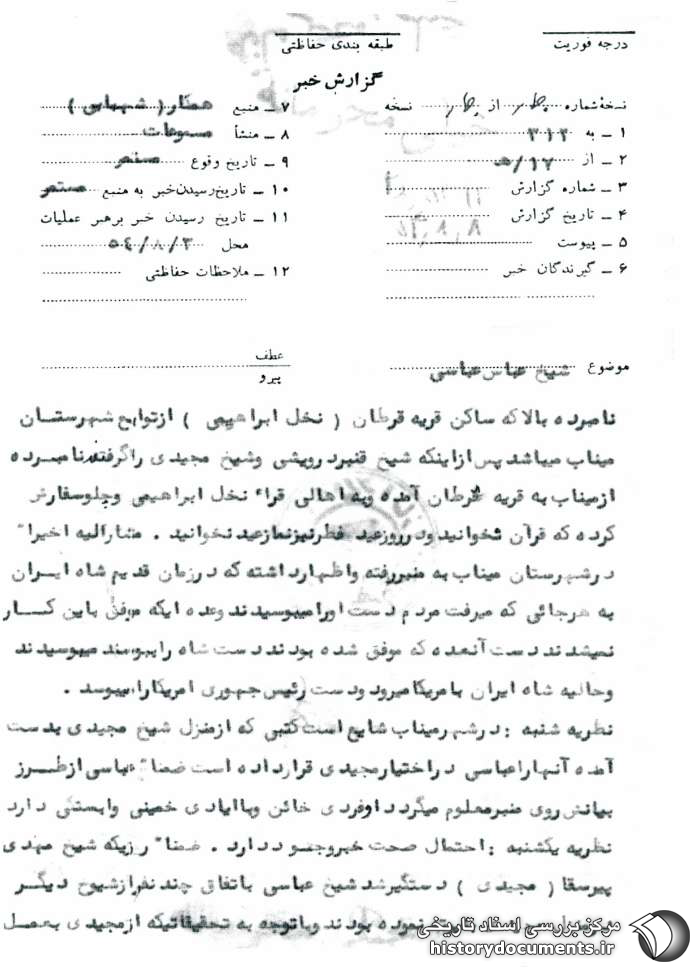 درجه فوریت
طبقه بندی حفاظتی
گزارش خبر
نسخهٔ شماره چهار از چهار نسخه
۱ ـ به ۳۱۲
۲ ـ از ۱۷/ه‍
۳ ـ شماره گزارش
۴ ـ تاریخ گزارش
۵ ـ پیوست
۶ ـ گیرندگان خبر
۷ ـ منبع همکار (شهبانی)
۸ ـ منشأ مسوعات
۹ ـ تاریخ وقوع مستمر
۱۰ ـ تاریخ رسیدن خبر به منبع مستمر
۱۱ ـ تاریخ رسیدن خبر برهبر عملیات
محل ۵۴/۸/۳
۱۲ ـ ملاحظات حفاظتی
عطف
پیرو
موضوع شیخ عباس عباسی
نامبرده بالا که ساکن قریه قرطان ( نخل ابراهیمی ) از توابع شهرستان
میناب میباشد پس از اینکه شیخ قنبر درویشی و شیخ مجیدی را گرفتند نامبرده
از میناب به قریه قرطان آمده و به اهالی قراء نخل ابراهیمی و چلو سفارش
کرده که قرآن نخوانید و در روز عید فطر نیز نماز عید نخوانید . مشارالیه اخیراً
در شهرستان میناب به منبر رفته و اظهار داشته که در زمان قدیم شاه ایران
به هر جائی که میرفت مردم دست او را میبوسیدند و عده ایکه موفق باین کار
نمیشدند دست آنعده که موفق شده بودند دست شاه را ببوسند میبوسیدند
و حالیه شاه ایران بامریکا میرود و دست رئیس جمهوری امریکا را میبوسد .
نظریه شنبه : در شهر میناب شایع است کتبی که از منزل شیخ مجیدی بدست
آمده آنها را عباسی در اختیار مجیدی قرار داده است ضمناً عباسی از طرز
بیانش روی منبر معلوم میگردد او فردی خائن و با ایادی خمینی وابستگی دارد
نظریه یکشنبه : احتمال صحت خبر وجود دارد . ضمناً روزیکه شیخ مهدی
پیرسقا ( مجیدی ) دستگیر شد شیخ عباسی باتفاق چند نفر از شیوخ دیگر
نموده بودند و با توجه به تحقیقاتیکه از مجیدی بعمل
مرکز بررسی اسناد تاریخی
historydocuments.ir